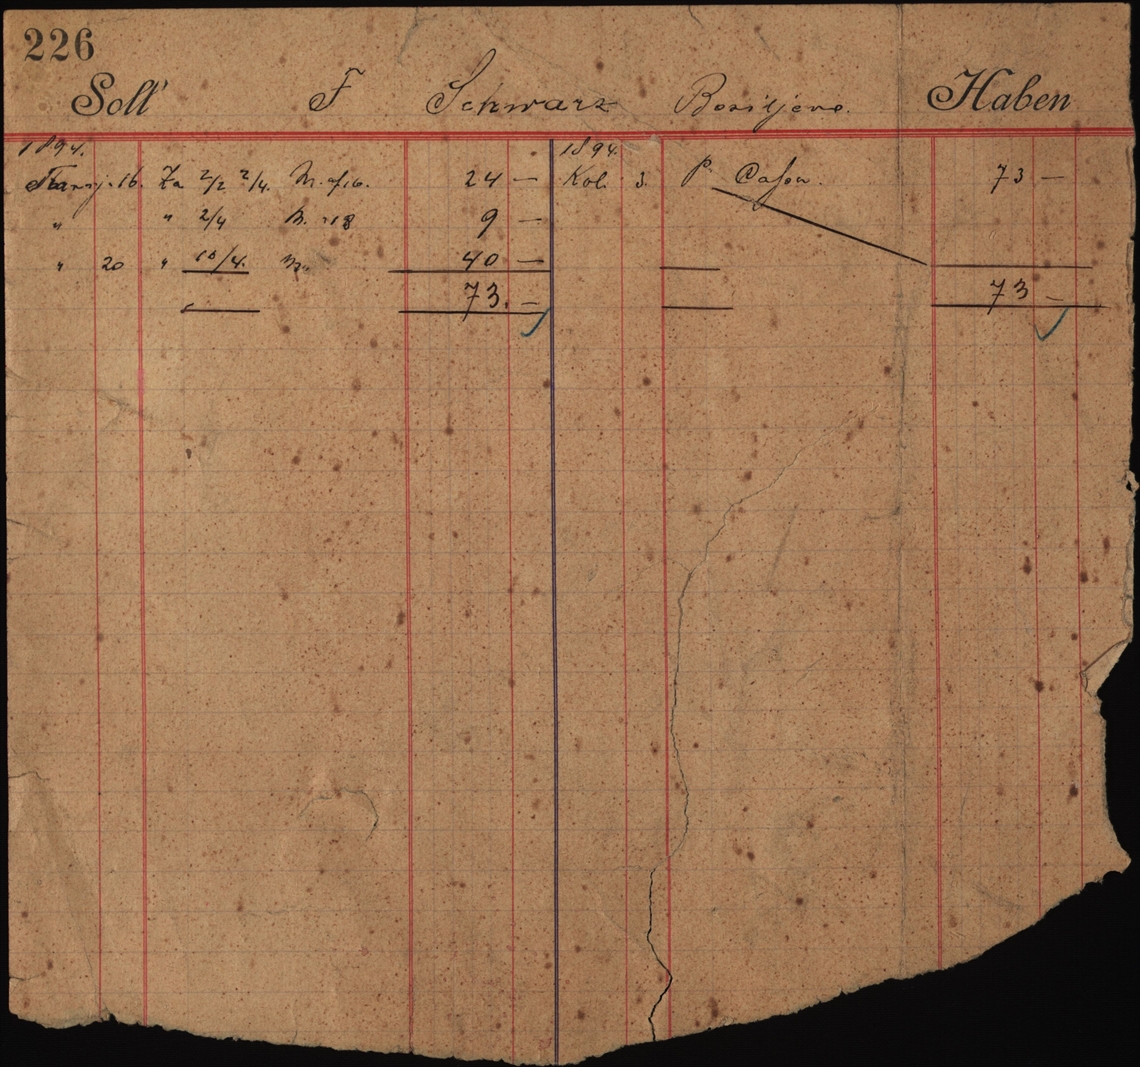 226
Soll F Schwarz Bosiljevo. Haben
1894. 1894.
16. Za 2/2 2/4. 24 — Kol. 3. P. Cassa. 73 —
" " 2/4 9 —
" 20 " 10/4. 40 —
73. — 73 —